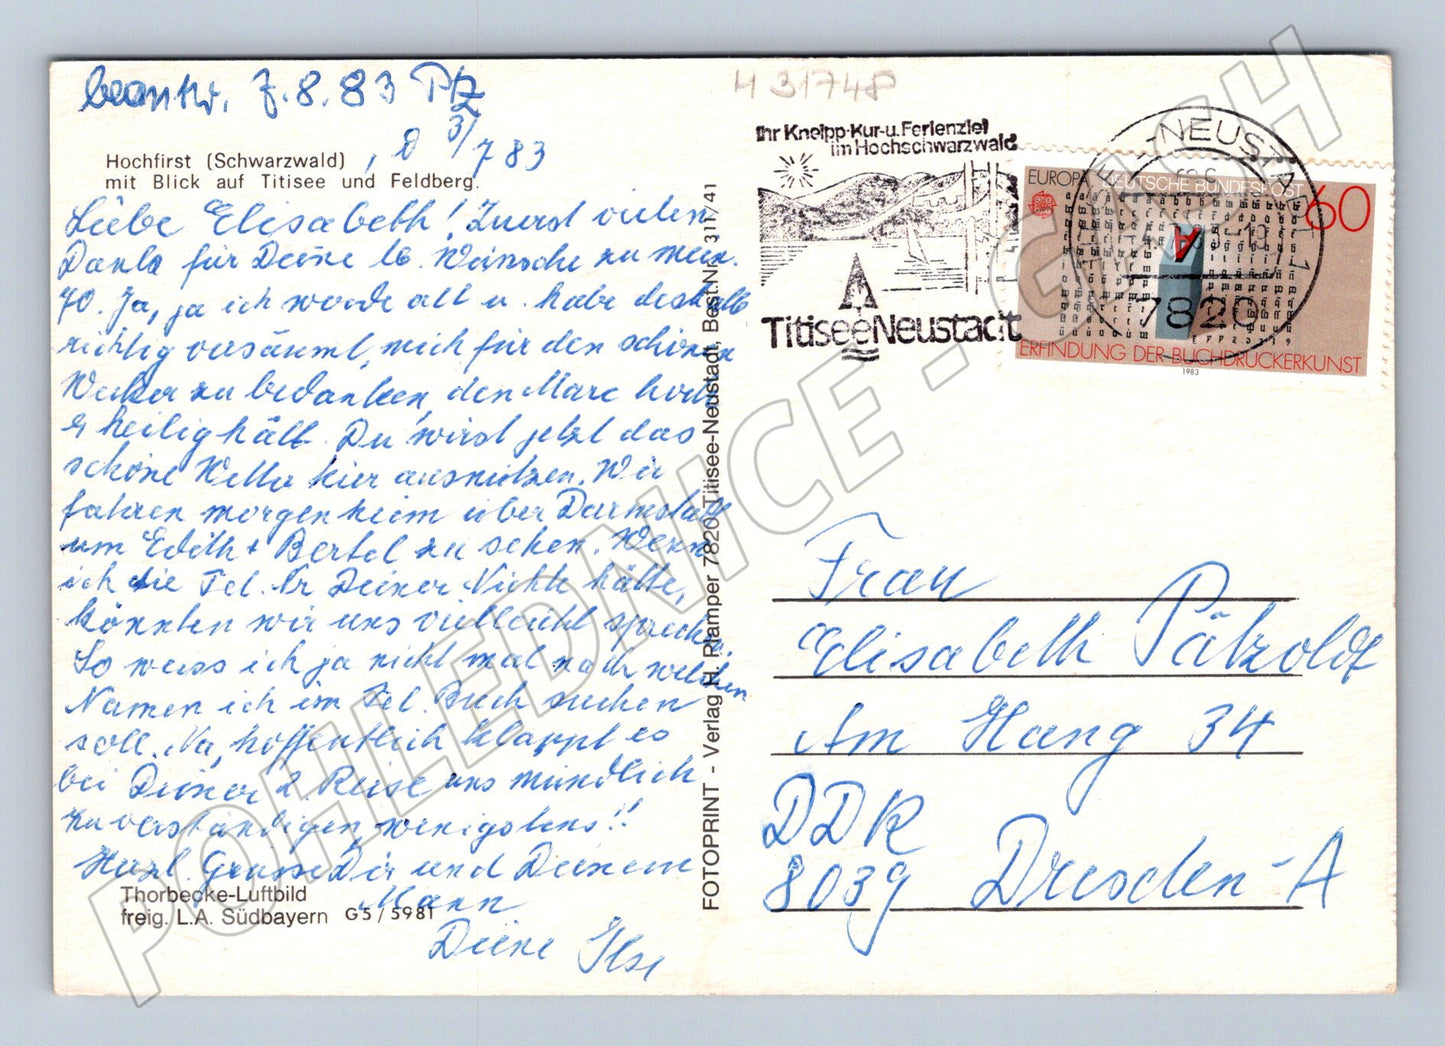 beantw. 7.8.83 Ptz
H 31748
Hochfirst (Schwarzwald)
mit Blick auf Titisee und Feldberg.
, d 3/7 83
Liebe Elisabeth! Zuerst vielen
Dank für Deine lb. Wünsche zu mein.
70. Ja, ja ich werde alt u. habe deshalb
richtig versäumt, mich für den schönen
zu bedanken, den Marc hoch
& heilig hält. Du wirst jetzt das
schöne Wetter hier ausnützen. Wir
fahren morgen heim über Darmstadt
um Edith + Bertel zu sehen. Wenn
ich die Tel. Nr Deiner Nichte hätte,
könnten wir uns vielleicht sprechen.
So weiss ich ja nicht mal nach welchen
Namen ich im Tel. Buch suchen
soll. Na, hoffentlich klappt es
bei Deiner 2. Reise uns mündlich
zu verständigen wenigstens!!
Herzl. Grüsse Dir und Deinem
Mann
Deine Ilse
Thorbecke-Luftbild
freig. L.A. Südbayern G5/5981
FOTOPRINT - Verlag H. Plamper 7820 Titisee-Neustadt, Best.Nr. 311/41
Ihr Kneipp-Kur-u. Ferienziel
im Hochschwarzwald
Titisee Neustadt
-NEUSTA
1
7820
EUROPA DEUTSCHE BUNDESPOST 60
A
ERFINDUNG DER BUCHDRUCKERKUNST
1983
Frau
Elisabeth Pätzoldt
Am Hang 34
DDR
8039 Dresden-A
POHLEDNICE - GUSH